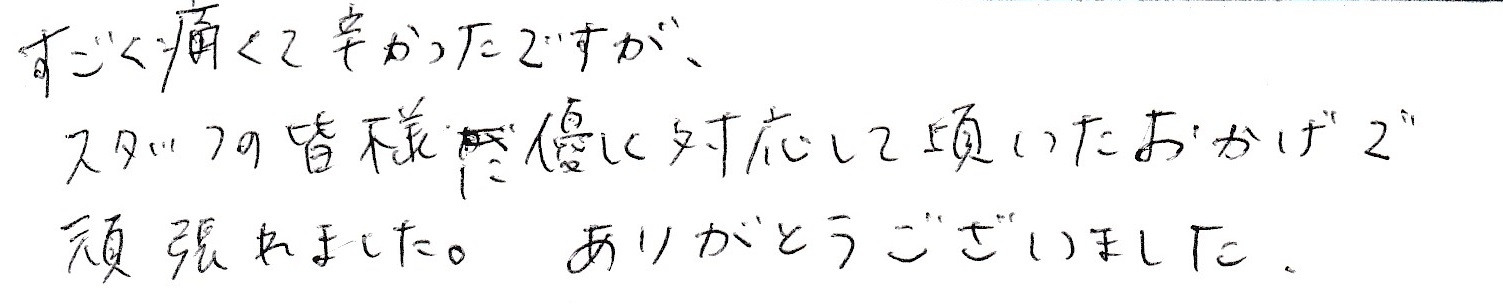 すごく痛くて辛かったですが、
スタッフの皆様に優しく対応して頂いたおかげで
頑張れました。 ありがとうございました.